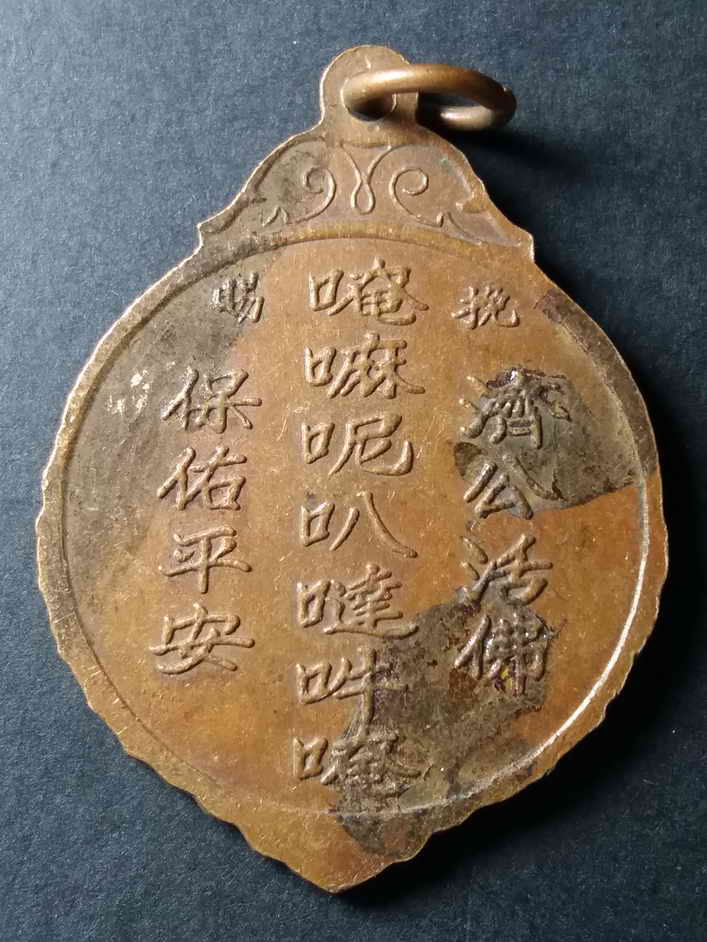 濟公活佛
唵嘛呢叭噠吽唵
賜
保佑平安